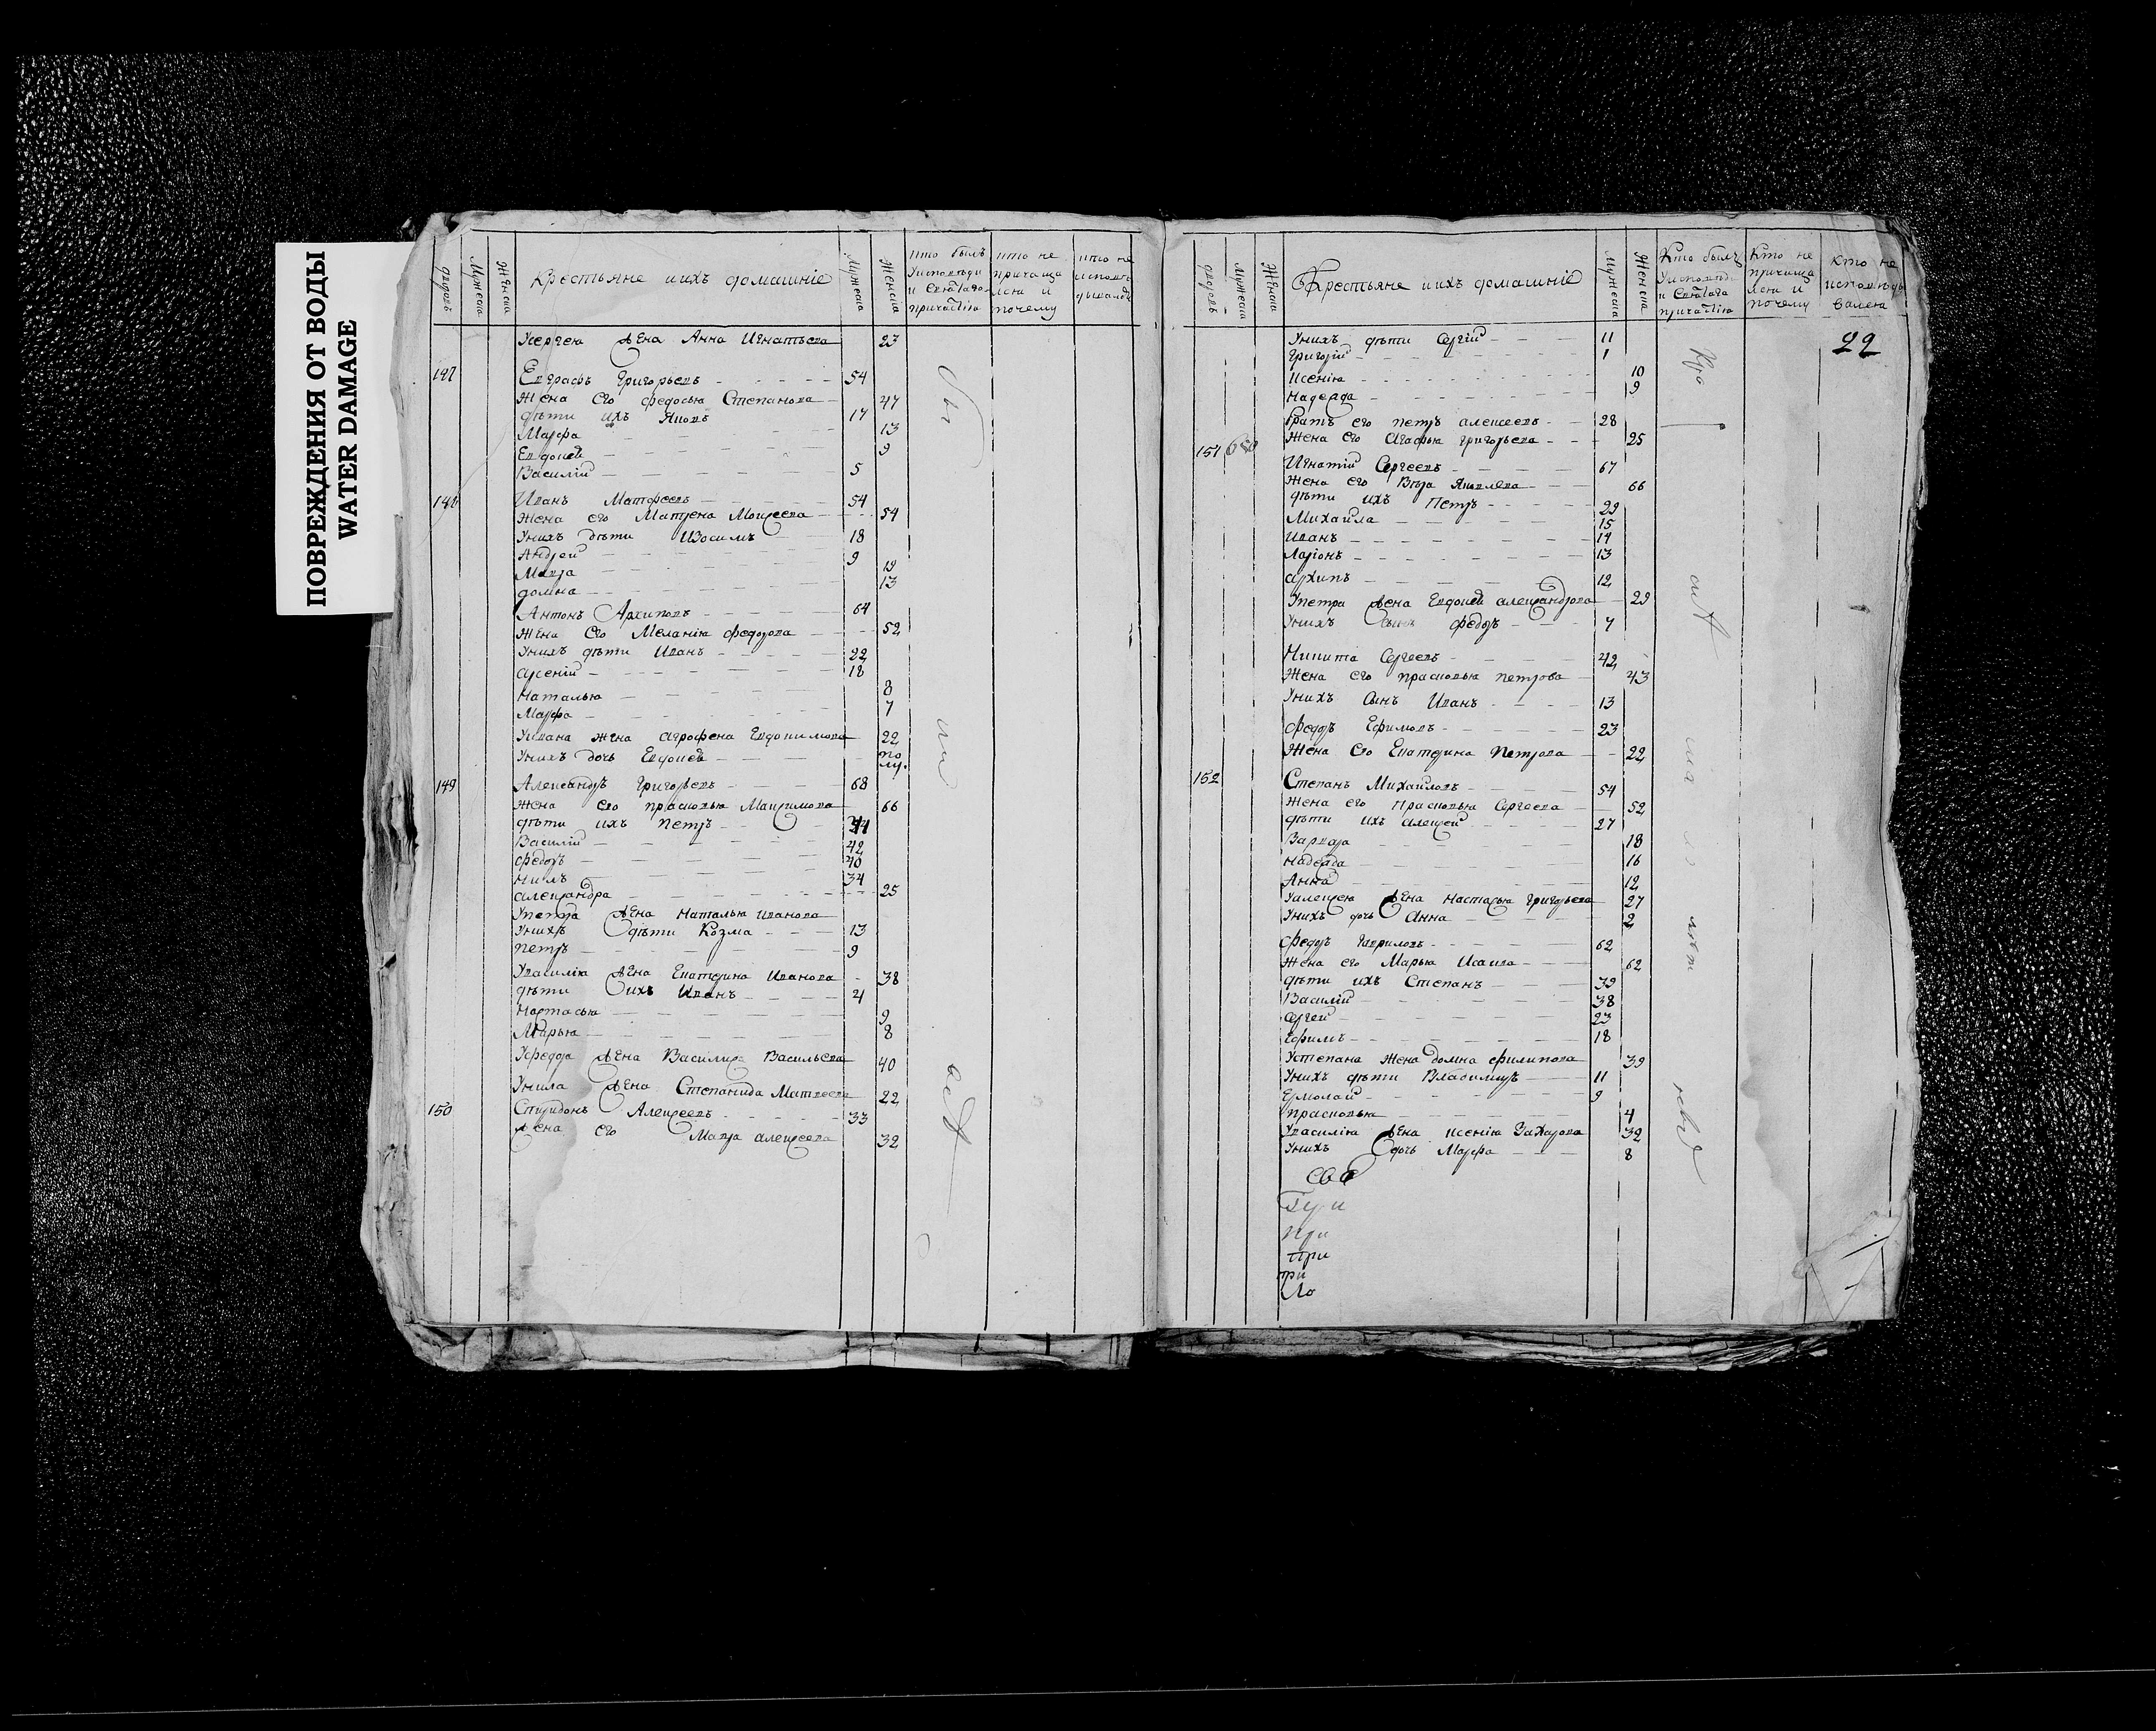 ПОВРЕЖДЕНИЯ ОТ ВОДЫ
WATER DAMAGE
дворовъ Мужеска Женска Крестьяне и ихъ домашніе Мужеска Женска кто былъ у исповеди и святаго причастія кто не причаща лся и почему кто не исповедывался
Усергея жена Анна Игнатьева 23
147 Евграфъ Григорьевъ 54
Жена его Федосья Степанова 47
дѣти ихъ Яковъ 17
Марфа 13
Евдокеѣ 9
Василій 5
148 Иванъ Матфеевъ 54
Жена его Матрена Моисеева 54
Унихъ дѣти Изосимъ 18
Андрей 9
Мавра 19
домна 13
Антонъ Архиповъ 64
Жена его Меланія Федорова 52
Унихъ дѣти Иванъ 22
Арсеній 18
Наталья 8
Марфа 7
Уивана жена Агрофена Евдокимова 22
Унихъ дочь Евдокеѣ пол.
149 Александръ Григорьевъ 68
Жена его прасковья Максимова 66
дѣти ихъ петръ 44
Василій 42
Федоръ 40
Нилъ 34
александра 25
Упетра жена Наталья Иванова
Унихъ дѣти Козма 13
петръ 9
Увасилія жена Екатерина Иванова 38
дѣти ихъ Иванъ 4
Настасья 9
Марья 8
Уфедора жена Василиса Васильева 40
Унила жена Степанида Матвеева 22
150 Спиридонъ Алексеевъ 33
жена его Мавра алексеева 32
дворовъ Мужеска Женска Крестьяне и ихъ домашніе Мужеска Женска Кто былъ у исповеди и святаго причастія Кто не причаща лся и почему Кто не исповеды вался
22
Унихъ дѣти Сергій 11
Григорій 1
Ксенія 10
Надежда 9
братъ его петръ алексеевъ 28
Жена его Агафья Григорьева 25
151 Игнатій Сергеевъ 67
Жена его Вера Яковлева 66
дѣти ихъ Петръ 29
Михайла 15
Иванъ 14
Ларіонъ 13
архипъ 12
Упетра жена Евдокеѣ александрова 29
Унихъ сынъ Федоръ 7
Никита Сергеевъ 42
Жена его прасковья петрова 43
Унихъ сынъ Иванъ 13
Федоръ Ефимовъ 23
Жена его Екатерина Петрова 22
152 Степанъ Михаиловъ 54
Жена его Прасковья Сергеева 52
дѣти ихъ алексей 27
Варвара 18
Надежда 16
Анна 12
Уалексея жена Настасья Григорьева 27
Унихъ дочь Анна 2
Федоръ Гавриловъ 62
Жена его Марья Исаева 62
дѣти ихъ Степанъ 39
Василій 38
Сергей 23
Ефимъ 18
Устепана Жена домна Филипова 39
Унихъ дѣти Владимиръ 11
Ермолай 9
прасковья 4
Увасилія жена ксенія Захарова 32
Унихъ дочь Марфа 8
При
при
ри
Ло